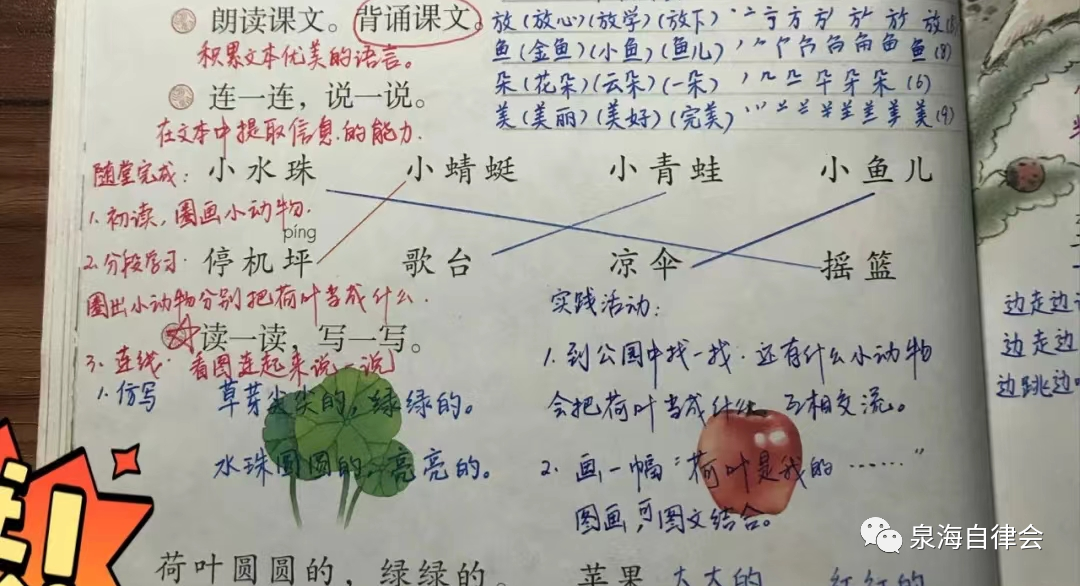 朗读课文。背诵课文。
放(放心)(放学)(放下)
积累文本优美的语言。
鱼(金鱼)(小鱼)(鱼儿) 鱼(8)
连一连，说一说。
朵(花朵)(云朵)(一朵) 朵(6)
美(美丽)(美好)(完美) 美(9)
在文本中提取信息的能力.
随堂完成: 小水珠 小蜻蜓 小青蛙 小鱼儿
1.初读,圈画小动物.
píng
2.分段学习. 停机坪 歌台 凉伞 摇篮
圈出小动物分别把荷叶当成什么.
实践活动:
读一读，写一写。
3.连线:看图连起来说一说
1.到公园中找一找.还有什么小动物
1.仿写 草芽尖尖的,绿绿的。
会把荷叶当成什么 互相交流。
水珠圆圆的,亮亮的。
2.画一幅“荷叶是我的……”
图画,可图文结合。
荷叶圆圆的，绿绿的。 苹果 大大的 红红的
边走边
边走边
边跳边
泉海自律会